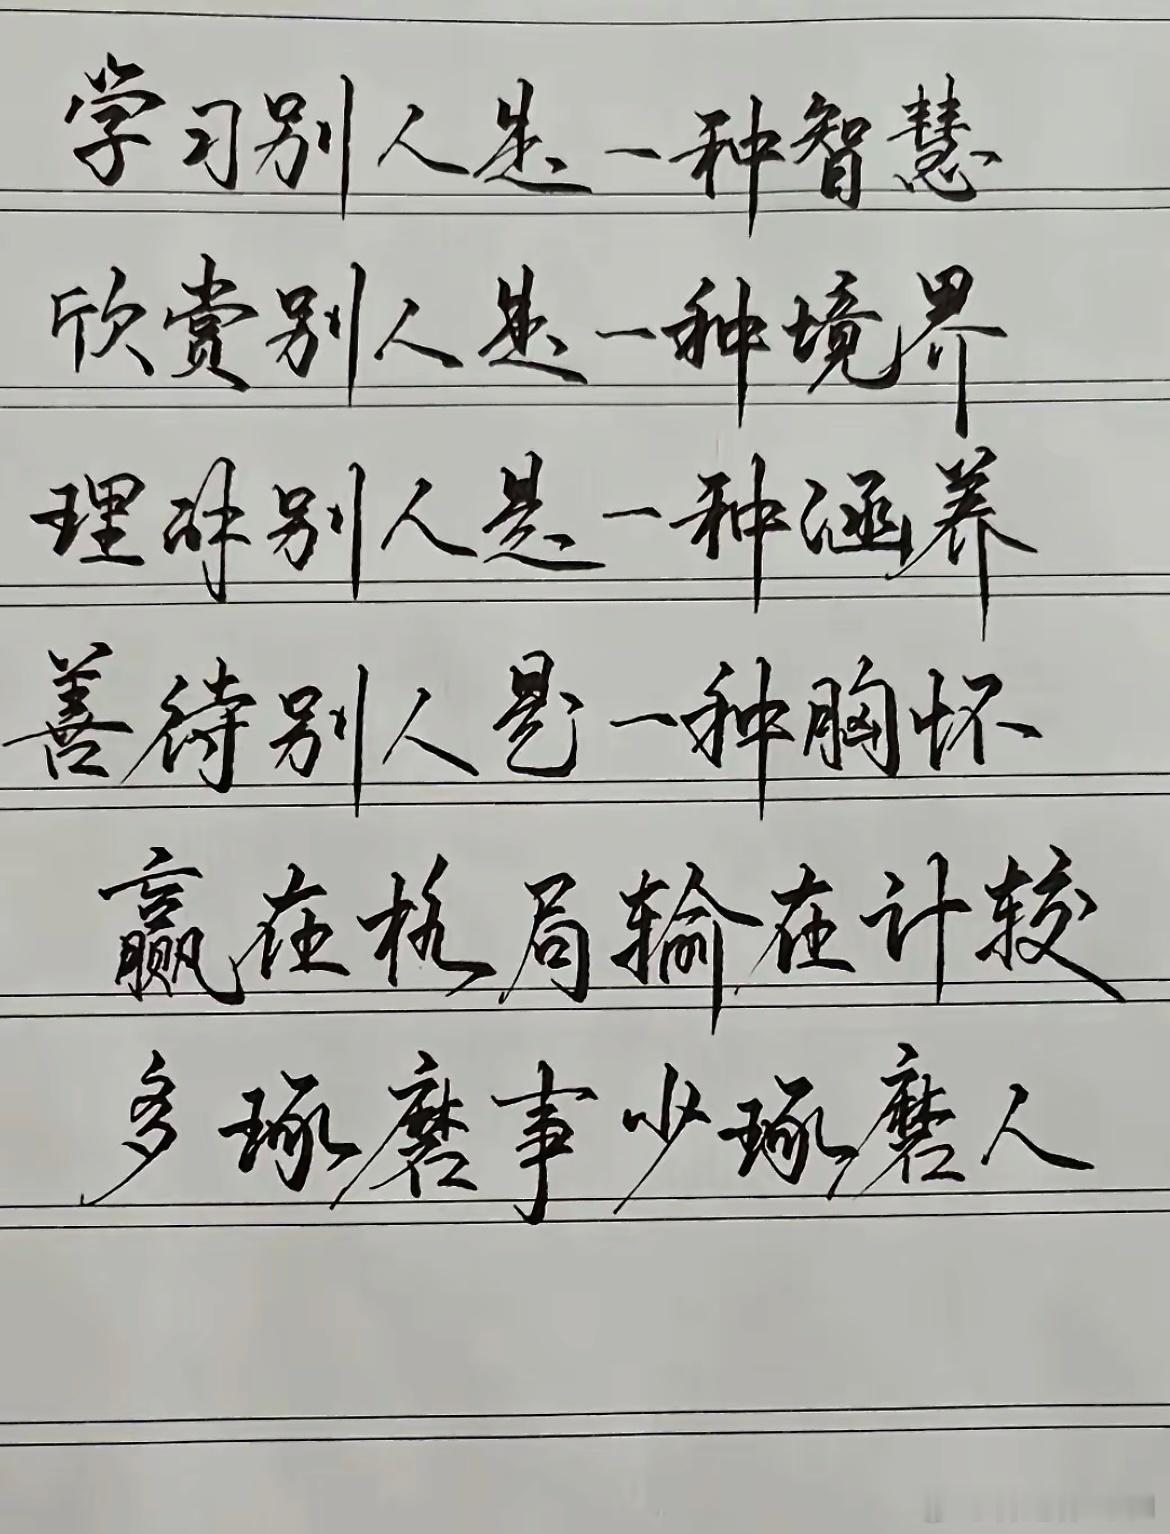 学习别人是一种智慧
欣赏别人是一种境界
理解别人是一种涵养
善待别人是一种胸怀
赢在格局输在计较
多琢磨事少琢磨人